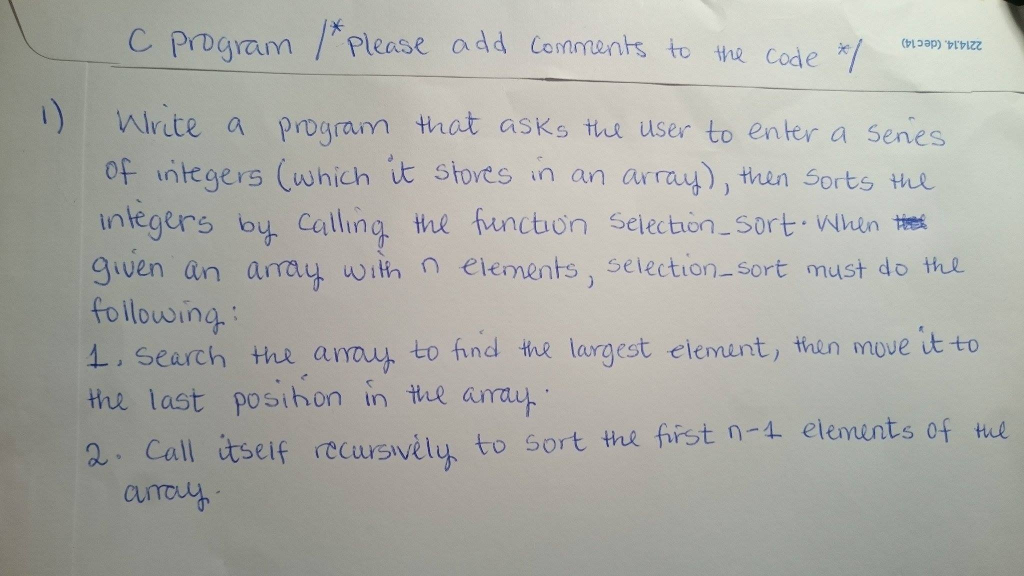 C program /* please add comments to the code */
22141.14. (dec 14)
1) Write a program that asks the user to enter a series
of integers (which it stores in an array), then sorts the
integers by calling the function selection_sort. When
given an array with n elements, selection_sort must do the
following:
1. Search the array to find the largest element, then move it to
the last position in the array.
2. Call itself recursively to sort the first n-1 elements of the
array.